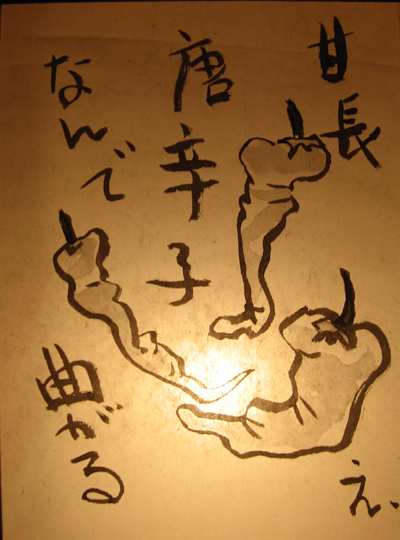 甘長
唐辛子
なんで
曲がる
え